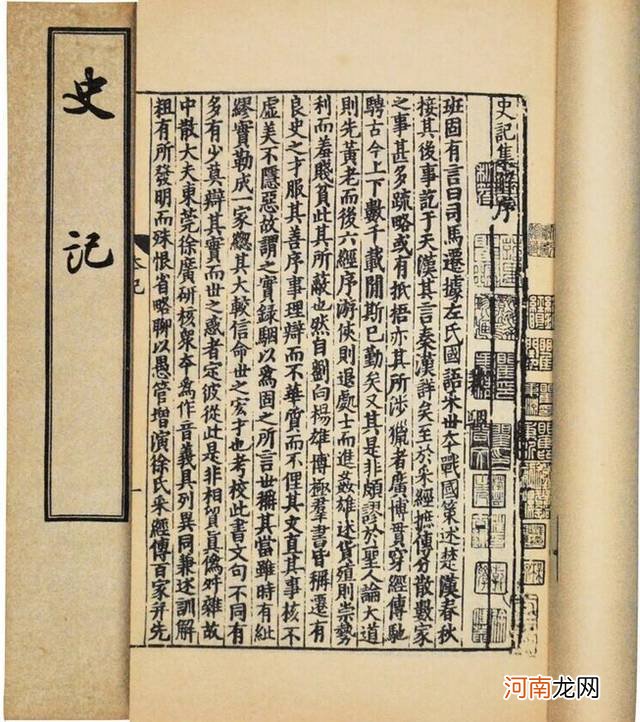 史記
史記集解序
班固有言曰司馬遷據左氏國語采丗本戰國策述楚漢春秋
接其後事訖于天漢其言秦漢詳矣至於采經摭傳分散數家
之事甚多疏略或有抵梧亦其所涉獵者廣博貫穿經傳馳
騁古今上下數千載閒斯已勤矣又其是非頗謬於聖人論大道
則先黃老而後六經序游俠則退處士而進姦雄述貨殖則崇勢
利而羞賤貧此其所蔽也然自劉向楊雄博極羣書皆稱遷有
良史之才服其善序事理辯而不華質而不俚其文直其事核不
虛美不隱惡故謂之實録駰以爲固之所言世稱其當雖時有紕
繆實勒成一家緫其大較信命世之宏才也考校此書文句不同有
多有少莫辯其實而世之惑者定彼從此是非相貿眞僞舛雜故
中散大夫東莞徐廣研核衆本爲作音義具列異同兼述訓解
粗有所發明而殊恨省略聊以愚管增演徐氏采經傳百家并先
本记
一
河南龙网